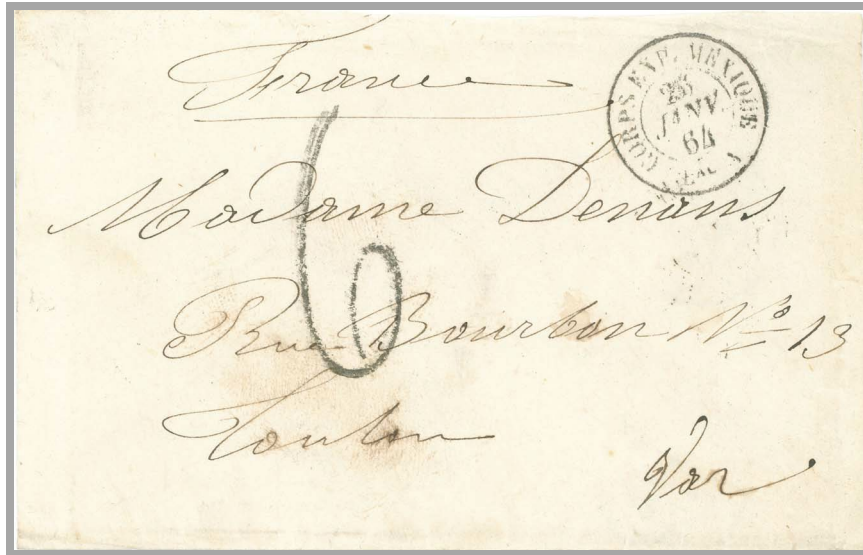 France
CORPS EXP. MEXIQUE
JANV.
64
6
Madame Denans
Rue Bourbon Nº 13
Toulon
Var